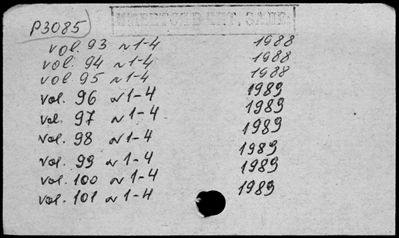 P3085
vol. 93 N 1-4 1988
vol. 94 N 1-4 1988
vol 95 N 1-4 1988
vol. 96 N 1-4 1989
vol. 97 N 1-4 1989
vol. 98 N 1-4 1989
vol. 99 N 1-4 1989
vol. 100 N 1-4 1989
vol. 101 N 1-4 1989